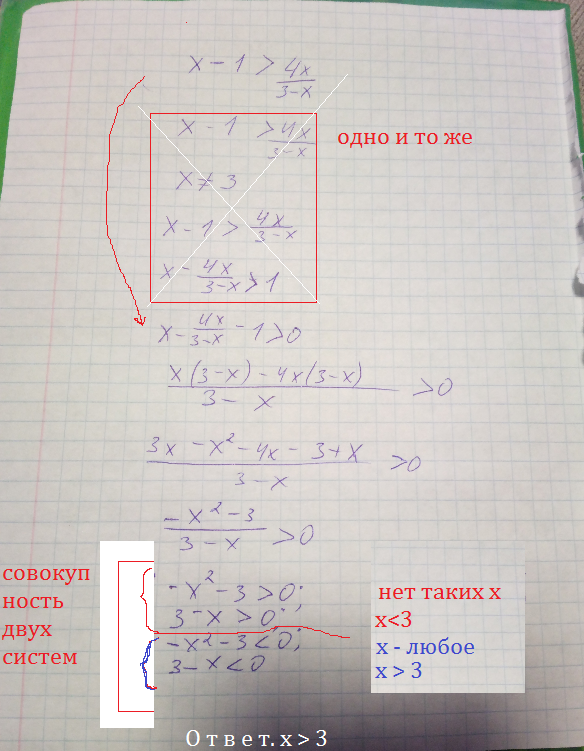 x - 1 > 4x/(3-x)
x - 1 > 4x/(3-x)
одно и то же
x ≠ 3
x - 1 > 4x/(3-x)
x - 4x/(3-x) > 1
x - 4x/(3-x) - 1 > 0
(x(3-x) - 4x(3-x))/(3-x) > 0
(3x - x² - 4x - 3 + x)/(3-x) > 0
(-x² - 3)/(3-x) > 0
совокуп
ность
двух
систем
-x² - 3 > 0;
3 - x > 0;
-x² - 3 < 0;
3 - x < 0
нет таких x
x<3
x - любое
x > 3
О т в е т. x > 3